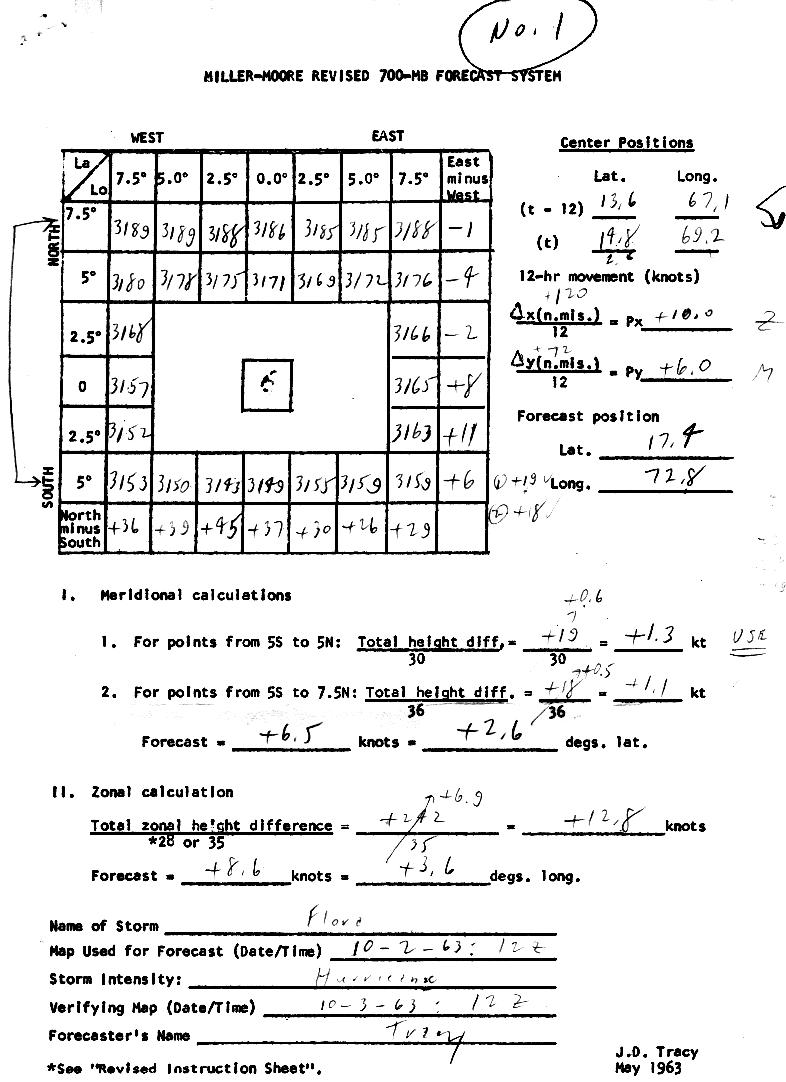 No. 1
MILLER-MOORE REVISED 700-MB FORECAST SYSTEM
WEST EAST
La Lo 7.5° 5.0° 2.5° 0.0° 2.5° 5.0° 7.5° East minus West
NORTH
7.5° 3189 3189 3188 3186 3185 3185 3188 -1
5° 3180 3178 3175 3171 3169 3172 3176 -4
2.5° 3168 3166 -2
0 3157 3165 +8
2.5° 3152 3163 +11
SOUTH
5° 3153 3150 3143 3149 3155 3159 3159 +6 (1) +19
North minus South +36 +39 +45 +37 +30 +26 +29 (2) +18
Center Positions
Lat. Long.
(t - 12) 13.6 67.1
(t) 14.8 69.2
2.6
12-hr movement (knots)
+120
Δx(n.mis.)/12 = Px +10.0
+72
Δy(n.mis.)/12 = Py +6.0
Forecast position
Lat. 17.4
Long. 72.8
I. Meridional calculations
+0.6
1. For points from 5S to 5N: Total height diff. = +19 = +1.3 kt USE
30 30
+0.5
2. For points from 5S to 7.5N: Total height diff. = +18 = +1.1 kt
36 36
Forecast = +6.5 knots = +2.6 degs. lat.
II. Zonal calculation
+6.9
Total zonal height difference = +242 = +12.8 knots
*28 or 35 35
Forecast = +8.6 knots = +3.6 degs. long.
Name of Storm Flora
Map Used for Forecast (Date/Time) 10-2-63: 12Z
Storm Intensity: Hurricane
Verifying Map (Date/Time) 10-3-63: 12Z
Forecaster's Name Tracy
*See "Revised Instruction Sheet".
J.D. Tracy
May 1963